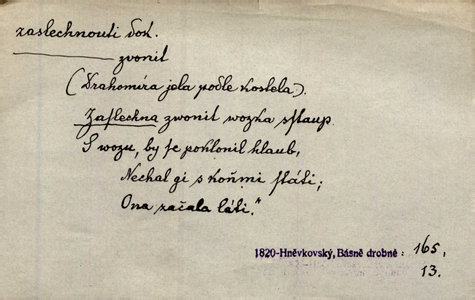 zaslechnouti dok.
zvonit
(Drahomíra jela podle kostela).
Zaslechna zwonit wozka sstaup
S wozu, by se poklonil hlaub,
Nechal gi s koňmi státi;
Ona začala láti."
1820-Hněvkovský, Básně drobné: 165,
13.